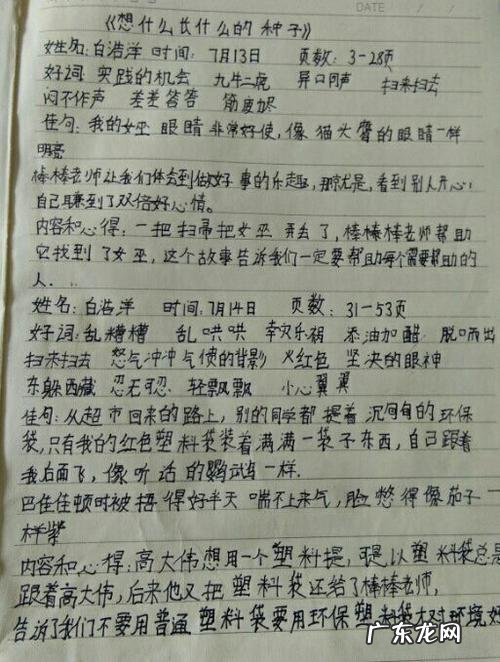 DATE
《想什么长什么的种子》
姓名:白浩洋 时间:7月13日 页数:3-28页
好词:实践的机会 九牛二虎 异口同声 扫来扫去
闷不作声 羞羞答答 筋疲力尽
佳句:我的女巫眼睛非常好使,像猫头鹰的眼睛一样
明亮
棒棒老师让我们体会到做好事的乐趣,那就是,看到别人开心,
自己赚到了双倍好心情。
内容和心得:一把扫帚把女巫弄丢了,棒棒棒老师帮助
它找到了女巫,这个故事告诉我们一定要帮助每个需要帮助的
人.
姓名:白浩洋 时间:7月14日 页数:31-53页
好词:乱糟糟 乱哄哄 幸灾乐祸 添油加醋 脱口而出
扫来扫去 怒气冲冲 气愤的背影 火红色 坚决的眼神
东躲西藏 忍无可忍 轻飘飘 小心翼翼
佳句:从超市回来的路上,别的同学都提着沉甸甸的环保
袋,只有我的红色塑料袋装着满满一袋子东西,自己跟着
我后面飞,像听话的鹦鹉一样.
巴佳佳顿时被捂得好半天喘不上来气,脸憋得像茄子一
样紫
内容和心得:高大伟想用一个塑料提,可是以塑料袋总是
跟着高大伟,后来他又把塑料袋还给了棒棒老师,
告诉了我们不要用普通塑料袋要用环保塑料袋才对环境好
广东龙网